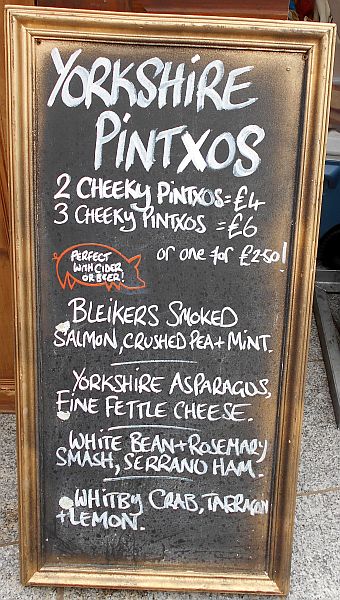 YORKSHIRE
PINTXOS
2 CHEEKY PINTXOS=£4
3 CHEEKY PINTXOS =£6
or one for £2.50!
PERFECT
WITH CIDER
OR BEER!
BLEIKERS SMOKED
SALMON, CRUSHED PEA+MINT.
YORKSHIRE ASPARAGUS,
FINE FETTLE CHEESE.
WHITE BEAN+ROSEMARY
SMASH, SERRANO HAM.
WHITBY CRAB, TARRAGON
+LEMON.